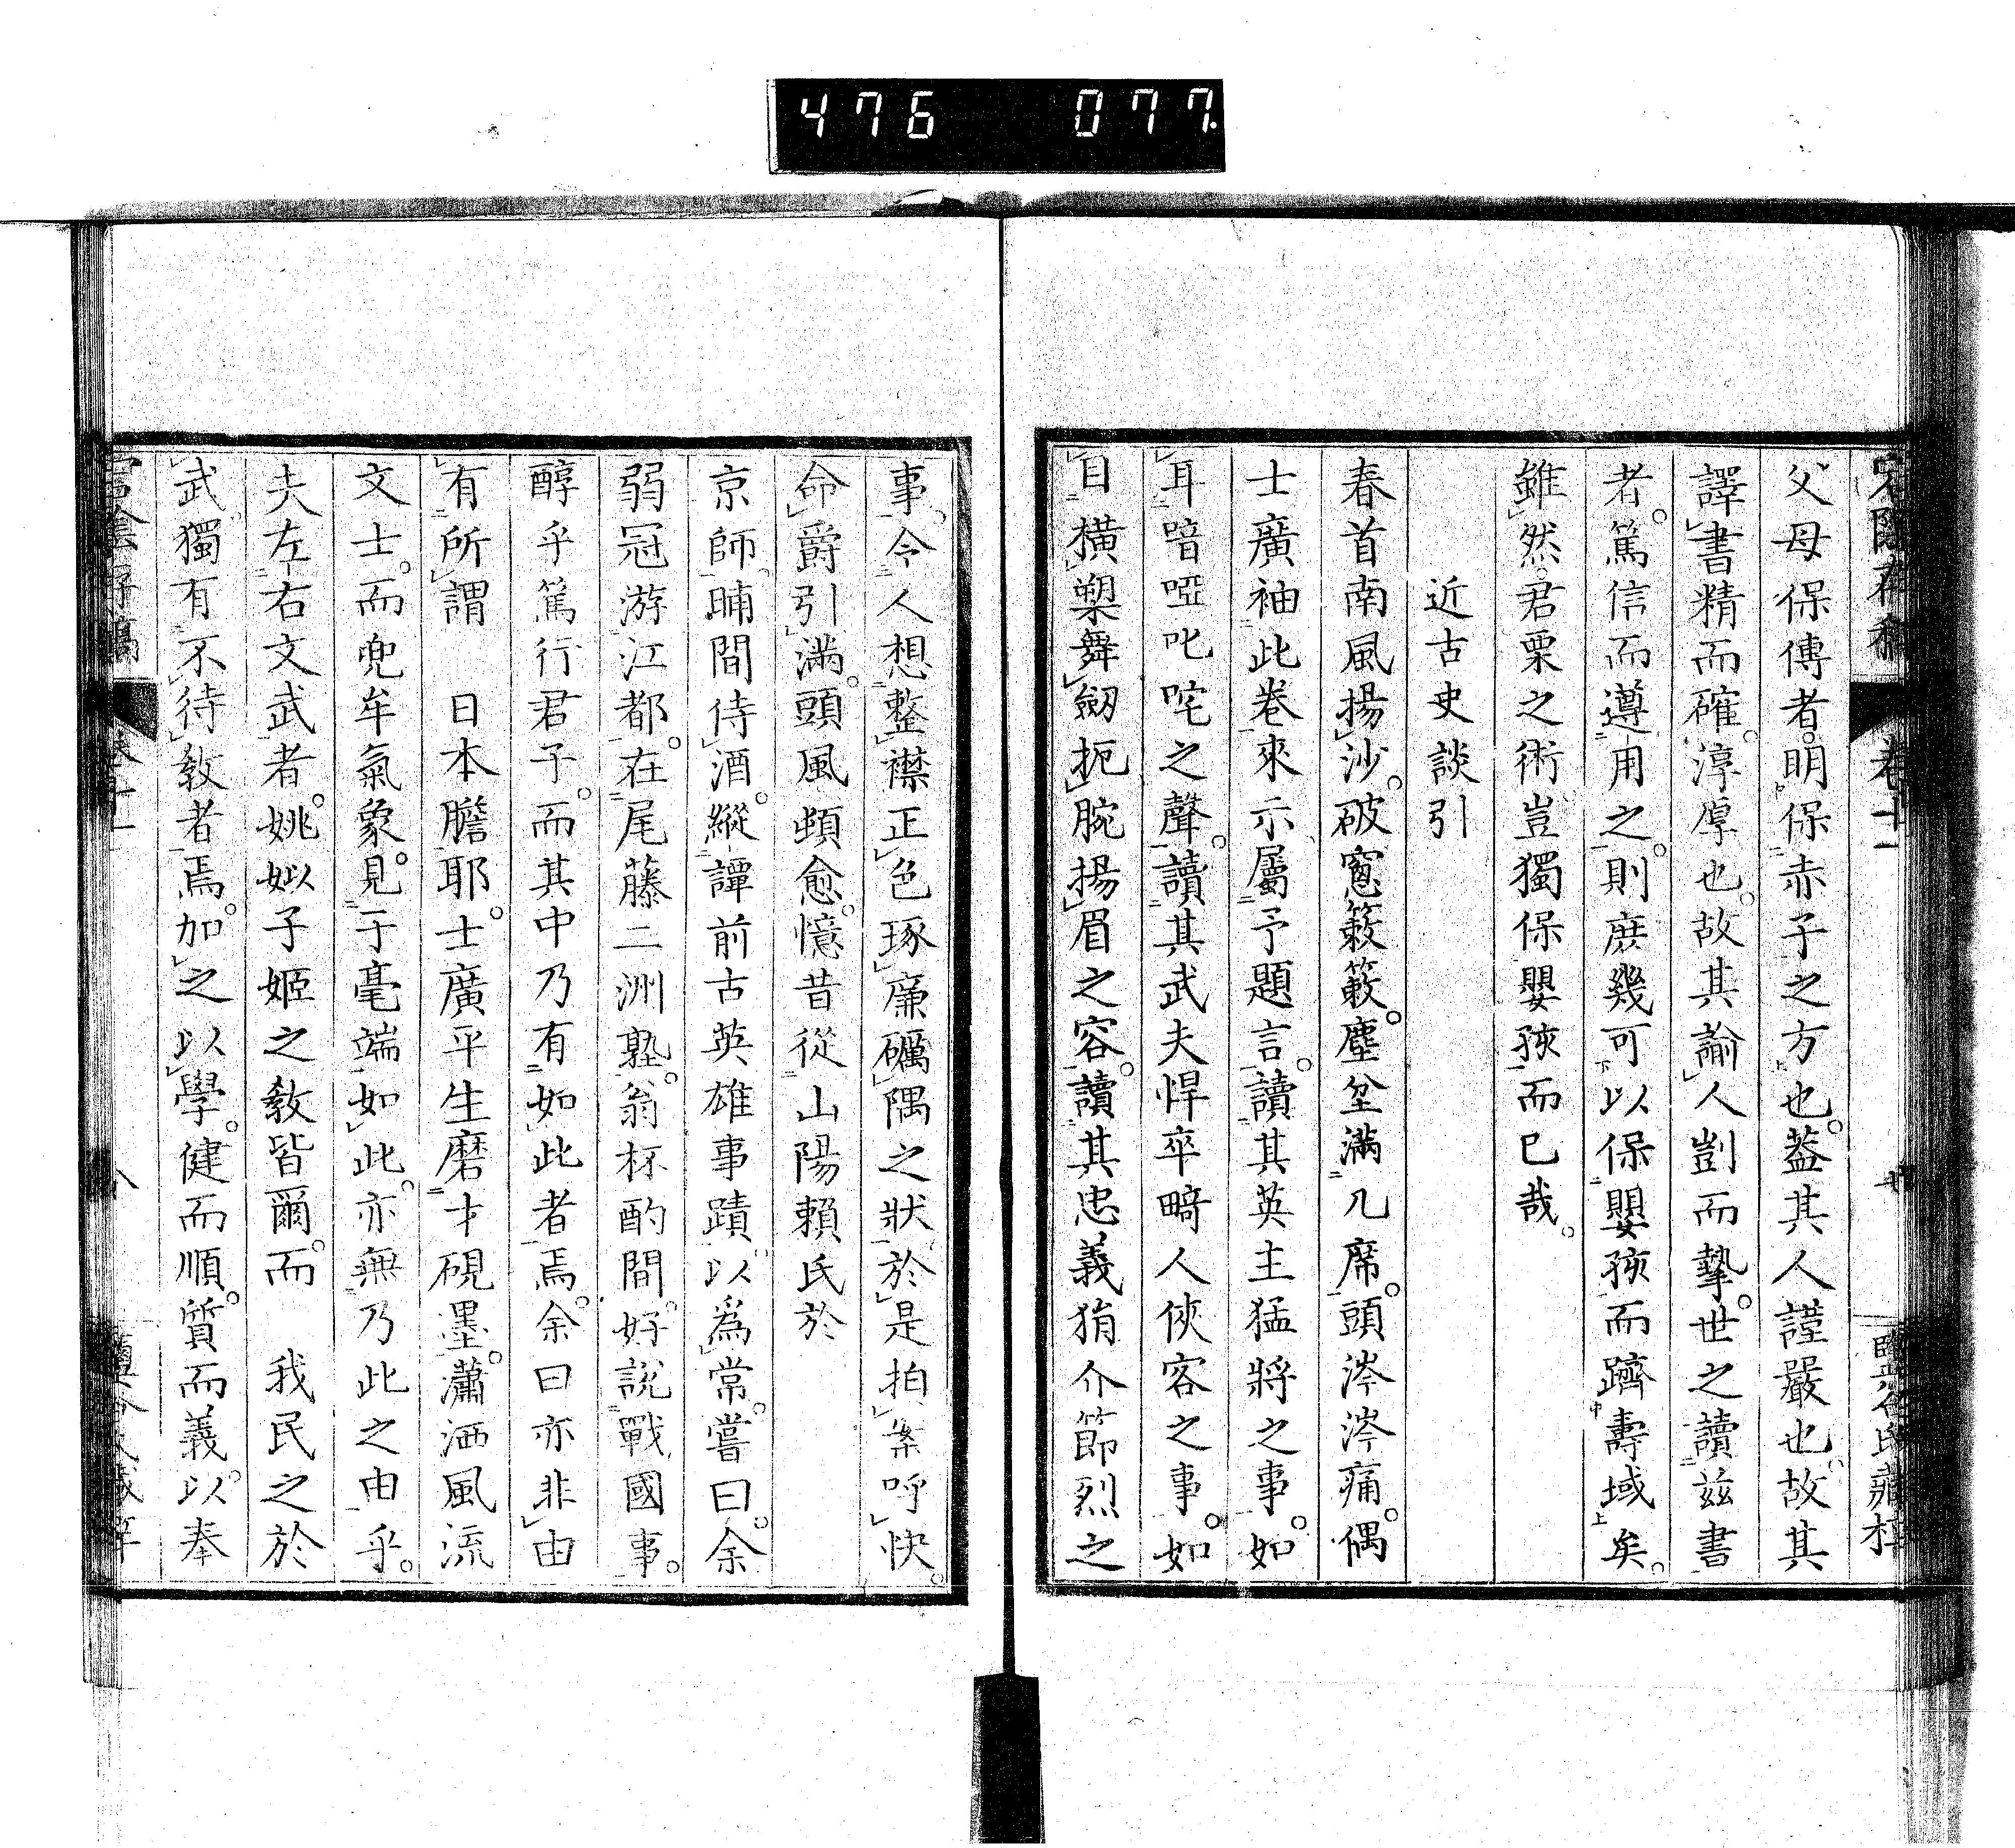 476 077
父母保傅者。明保赤子之方也。蓋其人謹嚴也。故其
譯書精而確。淳厚也。故其諭人剴而摯。世之讀茲書
者。篤信而遵用之。則庶幾可以保嬰孩而躋壽域矣。
雖然。君栗之術豈獨保嬰孩而已哉。
近古史談引
春首南風揚沙。破窓簌簌。塵坌滿几席。頭涔涔痛。偶
士廣袖此卷來示屬予題言。讀其英主猛將之事。如
耳喑啞叱咤之聲。讀其武夫悍卒畸人俠客之事。如
目橫槊舞劒扼腕揚眉之容。讀其忠義狷介節烈之
事。令人想整襟正色琢廉礪隅之狀。於是拍案呼快。
命爵引滿。頭風頓愈。憶昔從山陽賴氏於
京師。晡間侍酒。縱譚前古英雄事蹟。以爲常。嘗曰。余
弱冠游江都。在尾藤二洲塾。翁杯酌間。好說戰國事。
醇乎篤行君子。而其中乃有如此者焉。余曰亦非由
有所謂 日本膽耶。士廣平生磨才硯墨。瀟洒風流
文士。而兜牟氣象。見于毫端如此。亦無乃此之由乎。
夫左右文武者。姚姒子姬之敎皆爾。而 我民之於
武獨有不待敎者焉。加之以學。健而順。質而義。以奉